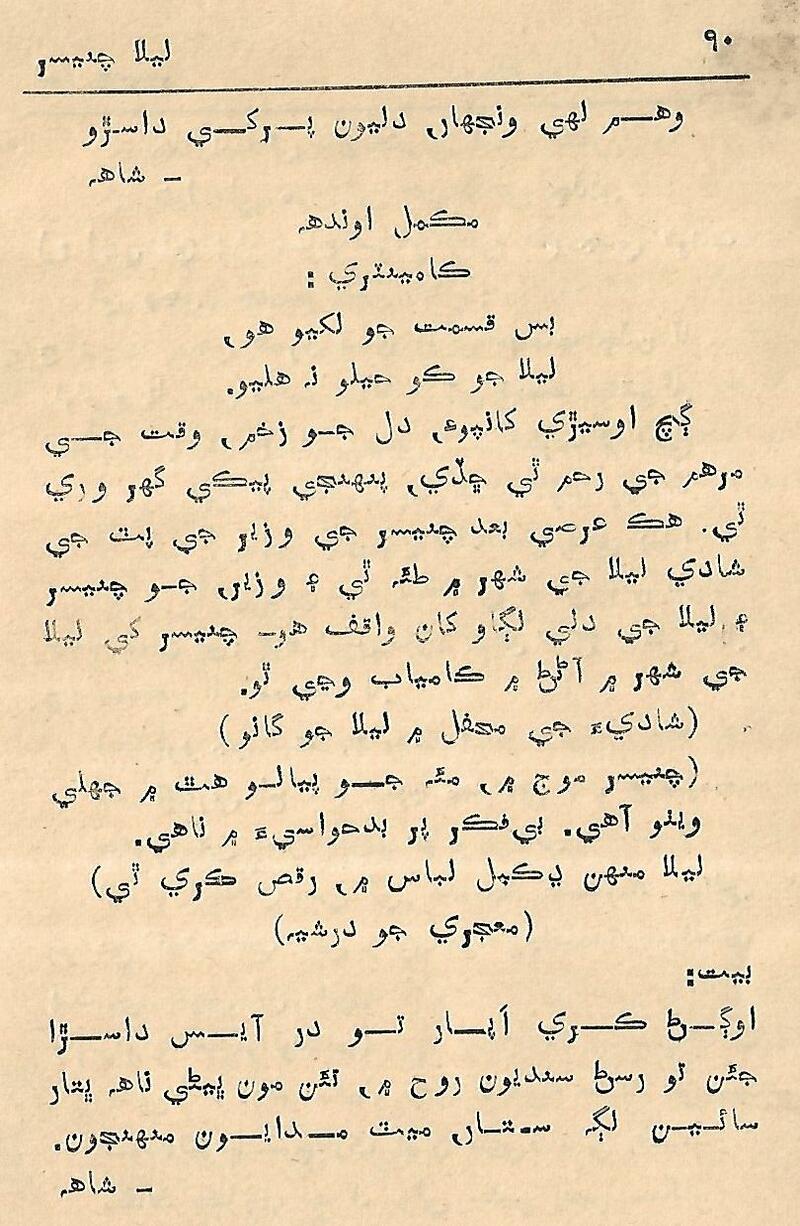 ٩٠
ليلا چنيسر
وهم لهي ونجهار، دليون پرکي داسڙو
- شاهه
مڪمل اونداهه
ڪامينٽري :
بس قسمت جو لکيو هو،
ليلا جو ڪو حيلو نہ هليو.
ڳچ اوسيڙي کانپوءِ، دل جو زخم، وقت جي
مرهم جي رحم تي ڇڏي، پنهنجي پيڪي گهر وري
ٿي. هڪ عرصي بعد چنيسر جي وزير جي پٽ جي
شادي ليلا جي شهر ۾ طئه ٿي ۽ وزير، جو چنيسر
۽ ليلا جي دلي لڳاو کان واقف هو- چنيسر کي ليلا
جي شهر ۾ آڻڻ ۾ ڪامياب وڃي ٿو.
(شاديءَ جي محفل ۾ ليلا جو گانو)
(چنيسر موج ۾، مئه جو پيالو هٿ ۾ جهلي
ويٺو آهي. بي‌فڪر پر بدحواسيءَ ۾ ناهي.
ليلا منهن ڍڪيل لباس ۾، رقص ڪري ٿي)
(مجري جو درشيہ)
بيت:
اوڳڻ ڪري اَپار تو در آيس داسڙا
جئن تو رسڻ سنديون روح ۾، تئن مون ڀيڻي ناهہ ڀتار
سائين لڳہ ستار، ميٽ مدايون منهنجون.
- شاهه